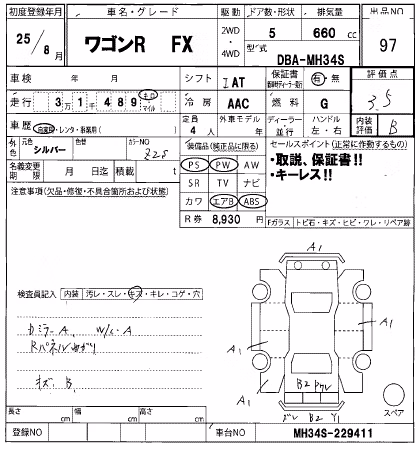 初度登録年月 車名・グレード 駆動 ドア数・形状 排気量 出品NO
25/8月 ワゴンR FX 2WD・4WD 5 660 cc 97
型式 DBA-MH34S
車検 年 月 シフト IAT 保証書 有・無 評価点
走行 3万1千489 キロ マイル 冷房 AAC 燃料 G 3.5
車歴 自家用・レンタ・事業用( ) 定員 外車モデル ディーラー ハンドル 内装評価
4人 年 並行 左・右 B
外色 元色 シルバー 色替 カラーNO Z2S 装備品(純正品に限る) セールスポイント(正常に作動するもの)
PS PW AW ・取説、保証書!!
名義変更期限 月 日迄 積載 t SR TV ナビ ・キーレス!!
注意事項(欠品・修復・不具合箇所および状態) カワ エアB ABS
R券 8,930円 Fガラス トビ石・キズ・ヒビ・ワレ・リペア跡
A1
検査員記入 内装 汚レ・スレ・キズ・キレ・コゲ・穴
カミラーA W/C・A
A1 A1
Rパネル
キズ B B2
A1 A1
B2 Y1 スペア
長さ cm 幅 cm 高さ cm
登録NO 車台NO MH34S-229411